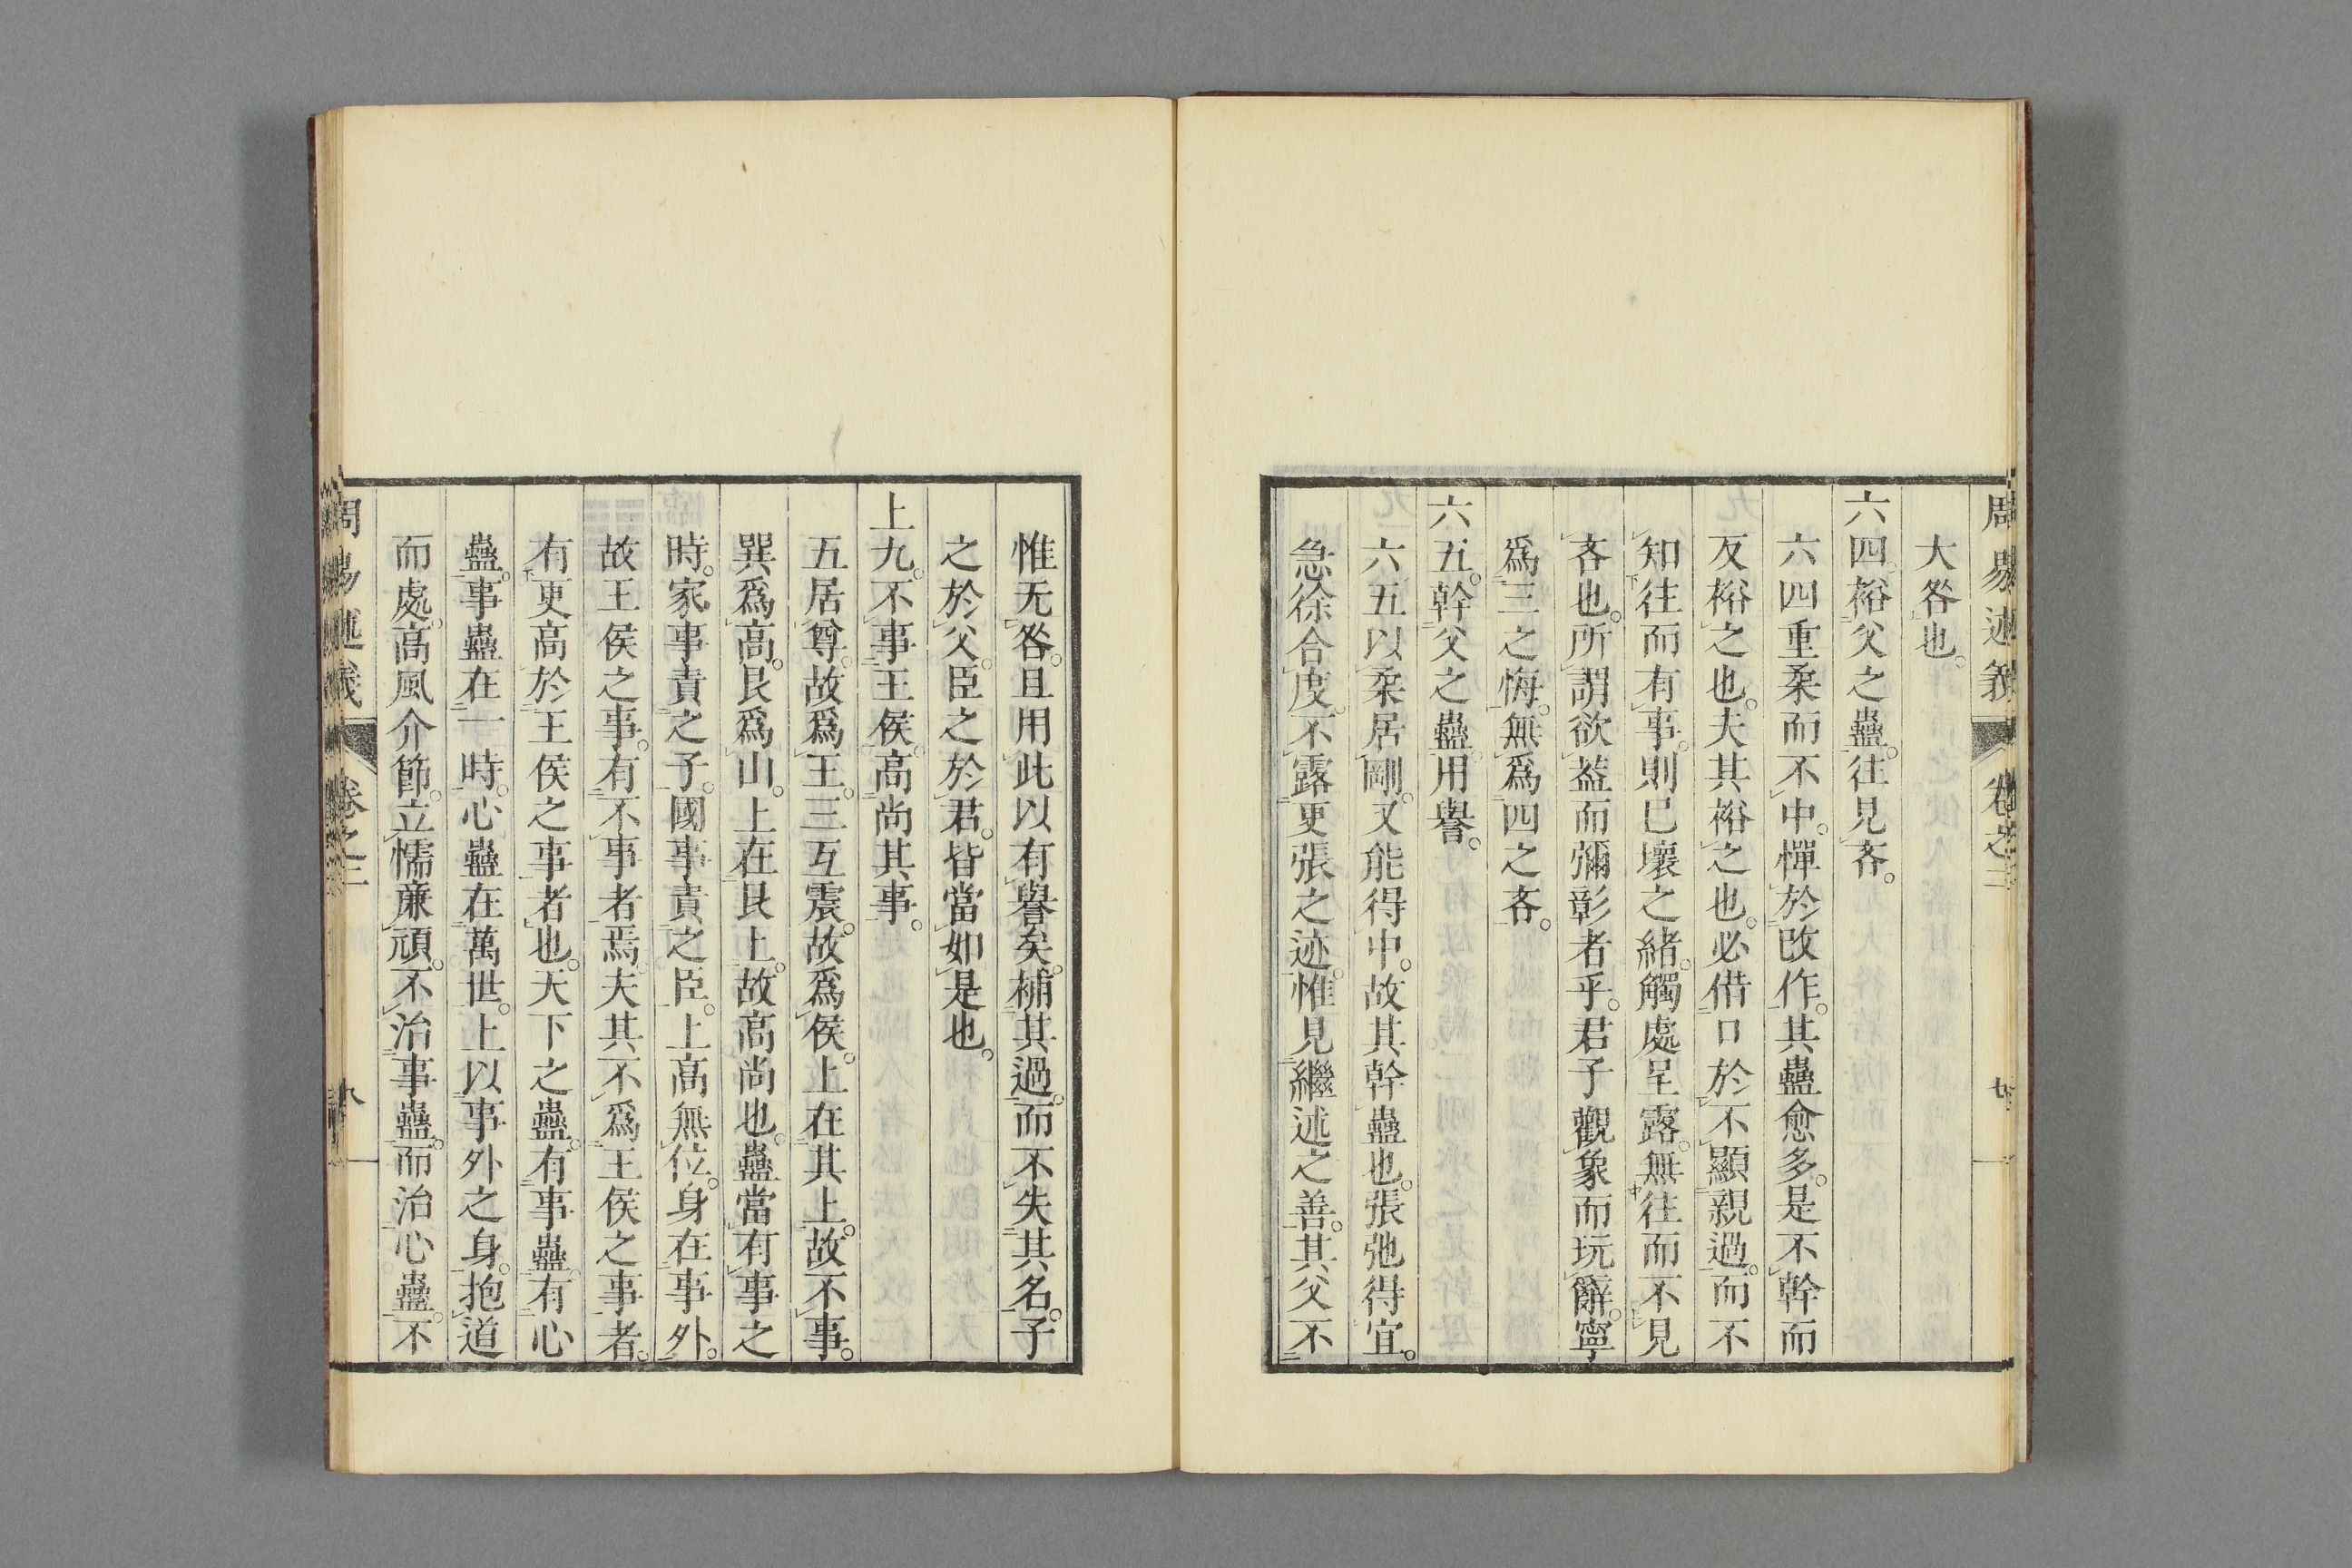 周易述義 卷之二 七
大咎也。
六四。裕父之蠱。往見吝。
六四重柔而不中。憚於改作。其蠱愈多。是不幹而
反裕之也。夫其裕之也。必借口於不顯親過。而不
知往而有事。則已壞之緒。觸處呈露。無往而不見
吝也。所謂欲葢而彌彰者乎。君子觀象而玩辭。寧
爲三之悔。無爲四之吝。
六五。幹父之蠱。用譽。
六五以柔居剛。又能得中。故其幹蠱也。張弛得宜。
急徐合度。不露更張之迹。惟見繼述之善。其父不
惟无咎。且用此以有譽矣。補其過。而不失其名。子
之於父。臣之於君。皆當如是也。
上九。不事王侯。高尚其事。
五居尊。故爲王。三互震。故爲侯。上在其上。故不事。
巽爲高。艮爲山。上在艮上。故高尚也。蠱當有事之
時。家事責之子。國事責之臣。上高無位。身在事外。
故王侯之事。有不事者焉。夫其不爲王侯之事者。
有更高於王侯之事者也。天下之蠱。有事蠱。有心
蠱。事蠱在一時。心蠱在萬世。上以事外之身。抱道
而處。高風介節。立懦廉頑。不治事蠱。而治心蠱。不
周易述義 卷之二 八